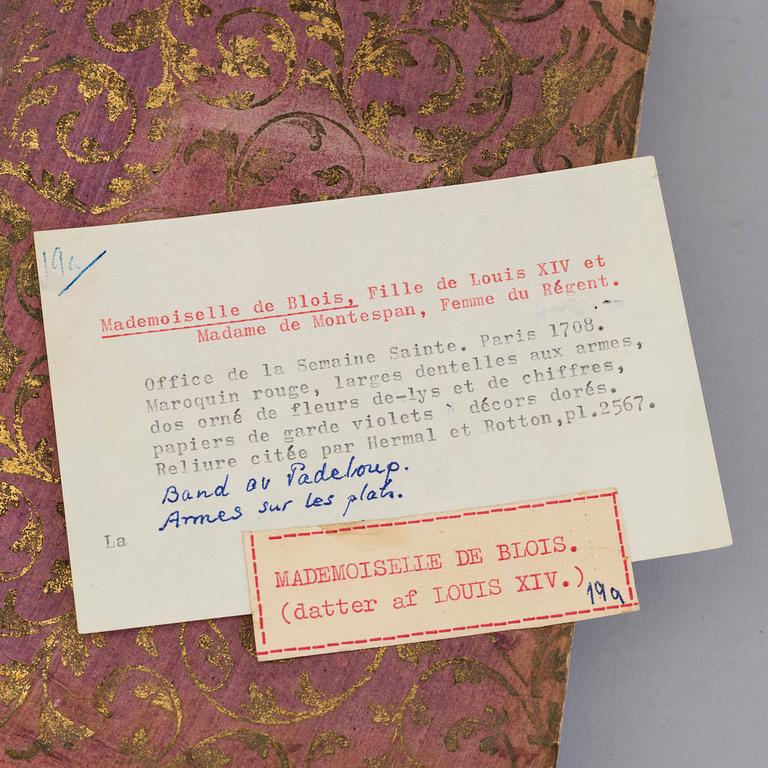 19a
Mademoiselle de Blois, Fille de Louis XIV et
Madame de Montespan, Femme du Régent.
Office de la Semaine Sainte. Paris 1708.
Maroquin rouge, larges dentelles aux armes,
dos orné de fleurs de-lys et de chiffres,
papiers de garde violets à décors dorés.
Reliure citée par Hermal et Rotton,pl.2567.
Band av Padeloup.
Armes sur les plats.
La
MADEMOISELLE DE BLOIS.
(datter af LOUIS XIV.)
19a